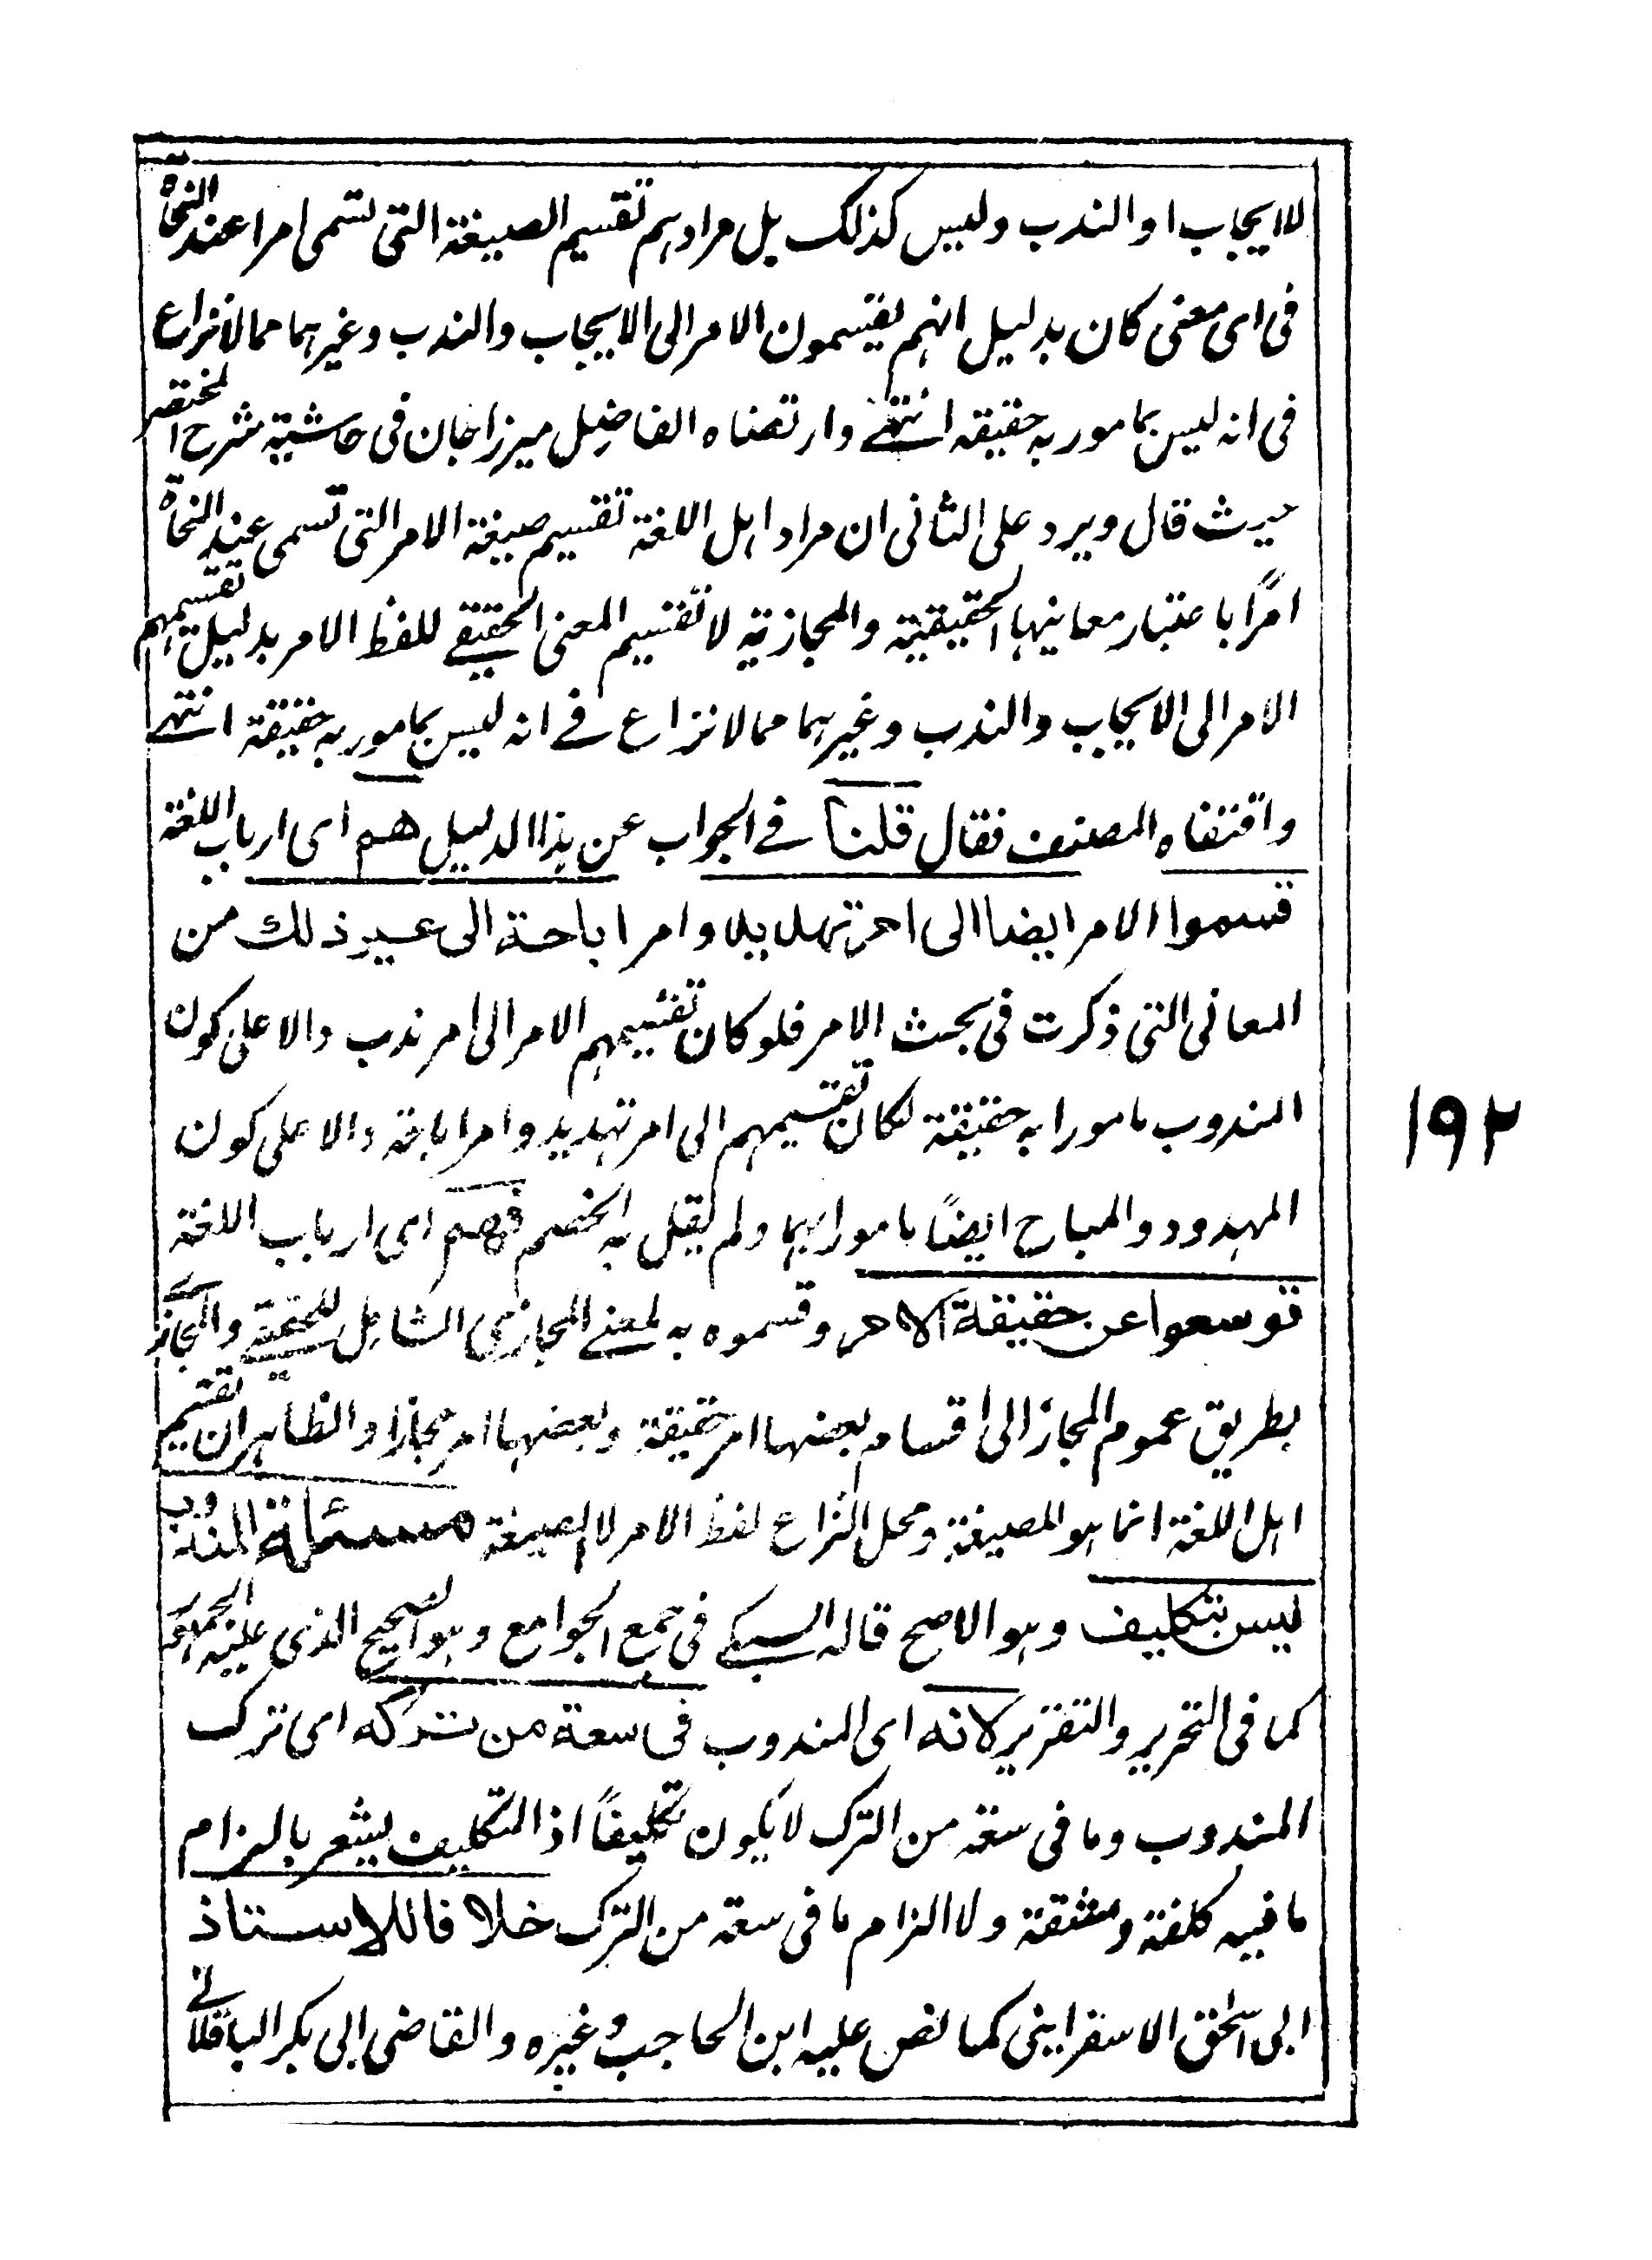 للايجاب او الندب وليس كذلك بل مرادهم تقسيم الصيغة التى تسمى امرا عند النحاة
فى اى معنى كان بدليل انهم يقسمون الامر الى الايجاب والندب وغيرهما مما لا نزاع
فى انه ليس بمامور به حقيقه انتهى وارتضاه الفاضل ميرزاجان فى حاشية شرح المختصر
حيث قال ويرد على الثانى ان مراد اهل اللغة تقسيم صيغة الامر التى تسمى عند النحاة
امرًا باعتبار معانيها الحقيقية والمجازية لا تقسيم المعنى الحقيقى للفظ الامر بدليل تقسيمهم
الامر الى الايجاب والندب وغيرهما مما لا نزاع فى انه ليس بمامور به حقيقة انتهى
واقتفاه المصنف فقال قلنا فى الجواب عن هذا الدليل هم اى ارباب اللغة
قسموا الامر ايضا الى امر تهديد وامر اباحة الى غير ذلك من
المعانى التى ذكرت فى بحث الامر فلو كان تقسيمهم الامر الى امر ندب دالا على كون
المندوب مامورا به حقيقة لكان تقسيمهم الى امر تهديد وامر اباحة دالا على كون
المهدود والمباح ايضًا مامورا بهما ولم يقل به الخصم فهم اى ارباب اللغة
توسعوا عن حقيقة الامر وقسموه به لمعنى المجازى الشامل للحقيقى والمجازى
بطريق عموم المجاز الى اقسام بعضها امر حقيقة وبعضها امر مجازا والظاهر ان تقسيم
اهل اللغة انما هو للصيغة ومحل النزاع لفظ الامر لا الصيغة مسئلة المندوب
ليس بتكليف وهو الاصح قاله السبكى فى جمع الجوامع وهو الصحيح الذى عليه الجمهور
كما فى التحرير والتقرير لانه اى المندوب فى سعة من تركه اى ترك
المندوب وما فى سعة من الترك لا يكون تكليفًا اذ التكليف يشعر بالزام
ما فيه كلفة ومشقة ولا الزام ما فى سعة من الترك خلافا للاستاذ
ابى اسحق الاسفراينى كما نص عليه ابن الحاجب وغيره والقاضى ابى بكر الباقلانى
١٩٢